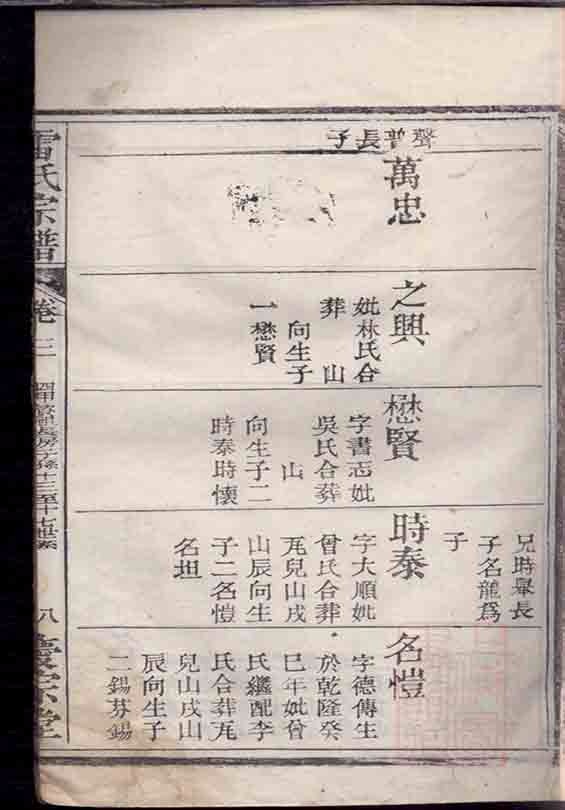 聲普長子
萬忠
之興
妣林氏合
葬　山
向生子
一懋賢
懋賢
字書志妣
吳氏合葬
山
向生子二
時泰時懷
兄時舉長
子名龍爲
子
時泰
字大順妣
曾氏合葬
瓦兒山戌
山辰向生
子二名愷
名坦
名愷
字德傳生
於乾隆癸
巳年妣曾
氏繼配李
氏合葬瓦
兒山戌山
辰向生子
二錫芬錫
雷氏宗譜
卷三
長房子孫十三至十七世系
八
慶宗堂